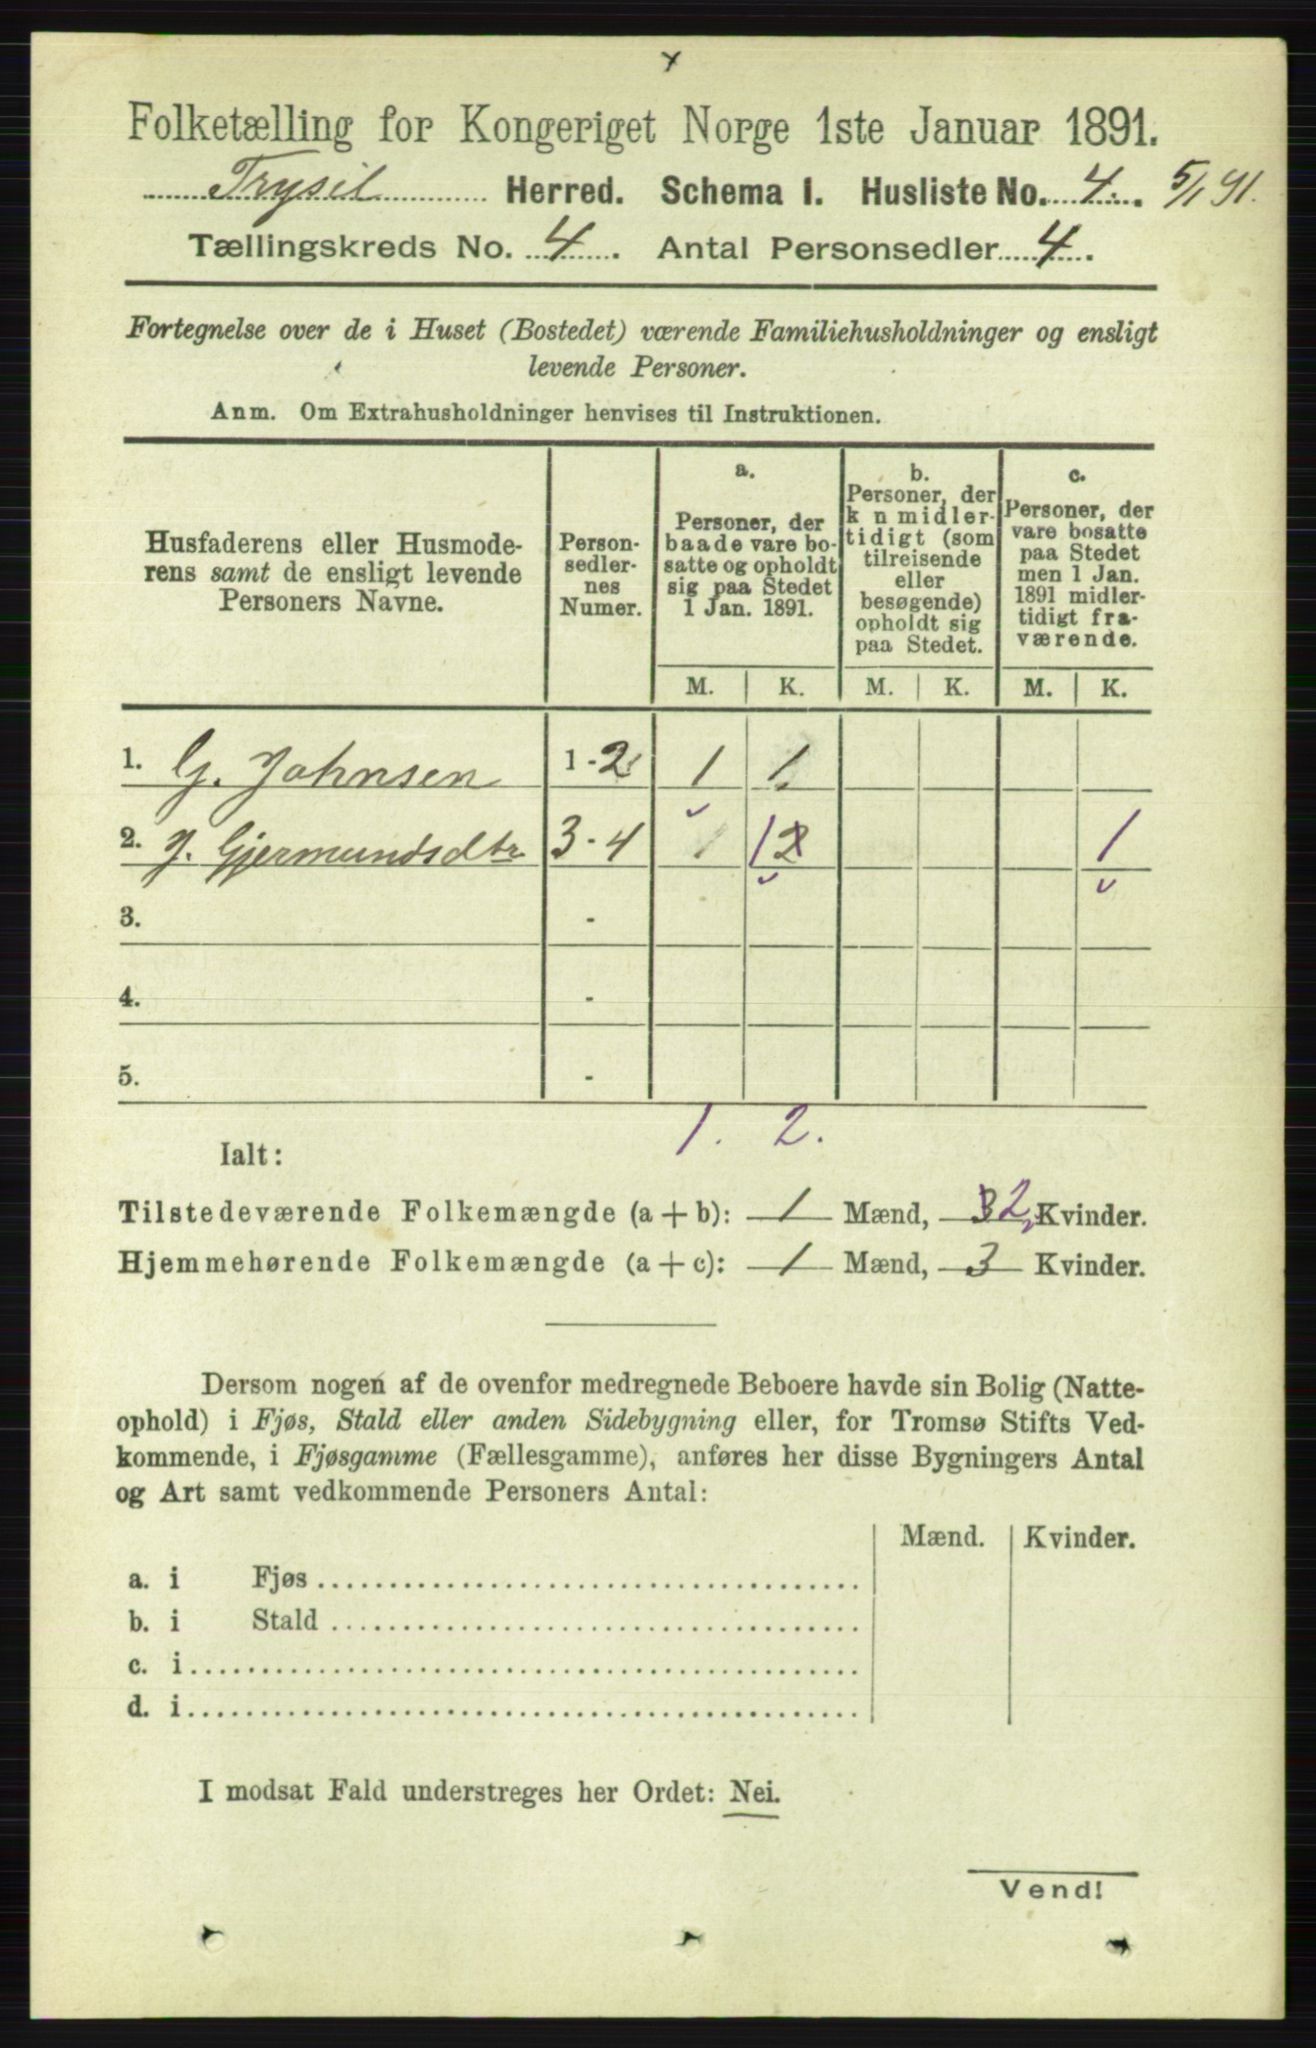 Folketælling for Kongeriget Norge 1ste Januar 1891.
Trysil Herred. Schema 1. Husliste No. 4. 5/1 91.
Tællingskreds No. 4. Antal Personsedler 4.
Fortegnelse over de i Huset (Bostedet) værende Familiehusholdninger og ensligt
levende Personer.
Anm. Om Extrahusholdninger henvises til Instruktionen.
Husfaderens eller Husmode-
rens samt de ensligt levende
Personers Navne.
Person-
sedler-
nes
Numer.
a.
Personer, der
baade vare bo-
satte og opholdt
sig paa Stedet
1 Jan. 1891.
b.
Personer, der
k n midler-
tidigt (som
tilreisende
eller
besøgende)
opholdt sig
paa Stedet.
c.
Personer, der
vare bosatte
paa Stedet
men 1 Jan.
1891 midler-
tidigt fra-
værende.
M. K. M. K. M. K.
1. G. Johnsen 1-2 1 1
2. J. Gjermundsdtr 3-4 1 1 2 1
3. -
4. -
5. -
1. 2.
Ialt:
Tilstedeværende Folkemængde (a + b): 1 Mænd, 3 2, Kvinder.
Hjemmehørende Folkemængde (a + c): 1 Mænd, 3 Kvinder.
Dersom nogen af de ovenfor medregnede Beboere havde sin Bolig (Natte-
ophold) i Fjøs, Stald eller anden Sidebygning eller, for Tromsø Stifts Ved-
kommende, i Fjøsgamme (Fællesgamme), anføres her disse Bygningers Antal
og Art samt vedkommende Personers Antal:
Mænd. Kvinder.
a. i Fjøs
b. i Stald
c. i
d. i
I modsat Fald understreges her Ordet: Nei.
Vend!